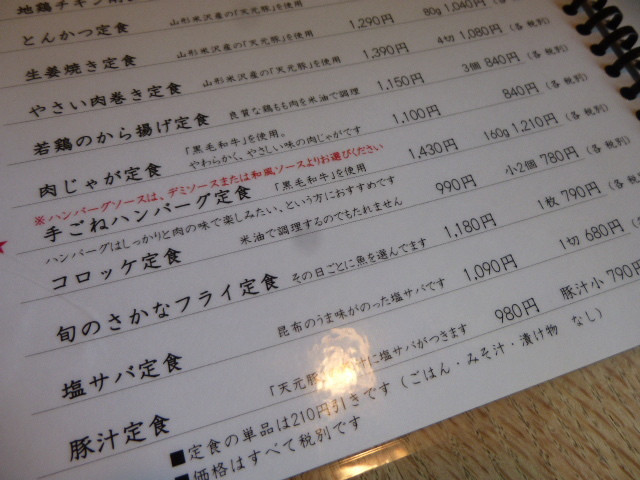 地鶏チキン
とんかつ定食 山形米沢産の「天元豚」を使用 1,290円 80g 1,040円 (各 税別)
生姜焼き定食 山形米沢産の「天元豚」を使用 1,390円 4切 1,080円 (各 税別)
やさい肉巻き定食 山形米沢産の「天元豚」を使用 1,150円 3個 840円 (各 税別)
若鶏のから揚げ定食 良質な鶏もも肉を米油で調理 1,100円 840円 (各 税別)
肉じゃが定食 「黒毛和牛」を使用。やわらかく、やさしい味の肉じゃがです 1,430円 160g 1,210円 (各 税別)
※ハンバーグソースは、デミソースまたは和風ソースよりお選びください
手ごねハンバーグ定食 「黒毛和牛」を使用 990円 小2個 780円 (各 税別)
ハンバーグはしっかりと肉の味で楽しみたい、という方におすすめです
コロッケ定食 米油で調理するのでもたれません 1,180円 1枚 790円 (各 税別)
旬のさかなフライ定食 その日ごとに魚を選んでます 1,090円 1切 680円 (各
塩サバ定食 昆布のうま味がのった塩サバです 980円 豚汁小 790円
豚汁定食 「天元豚 に塩サバがつきます
■定食の単品は210円引きです (ごはん・みそ汁・漬け物 なし)
■価格はすべて税別です